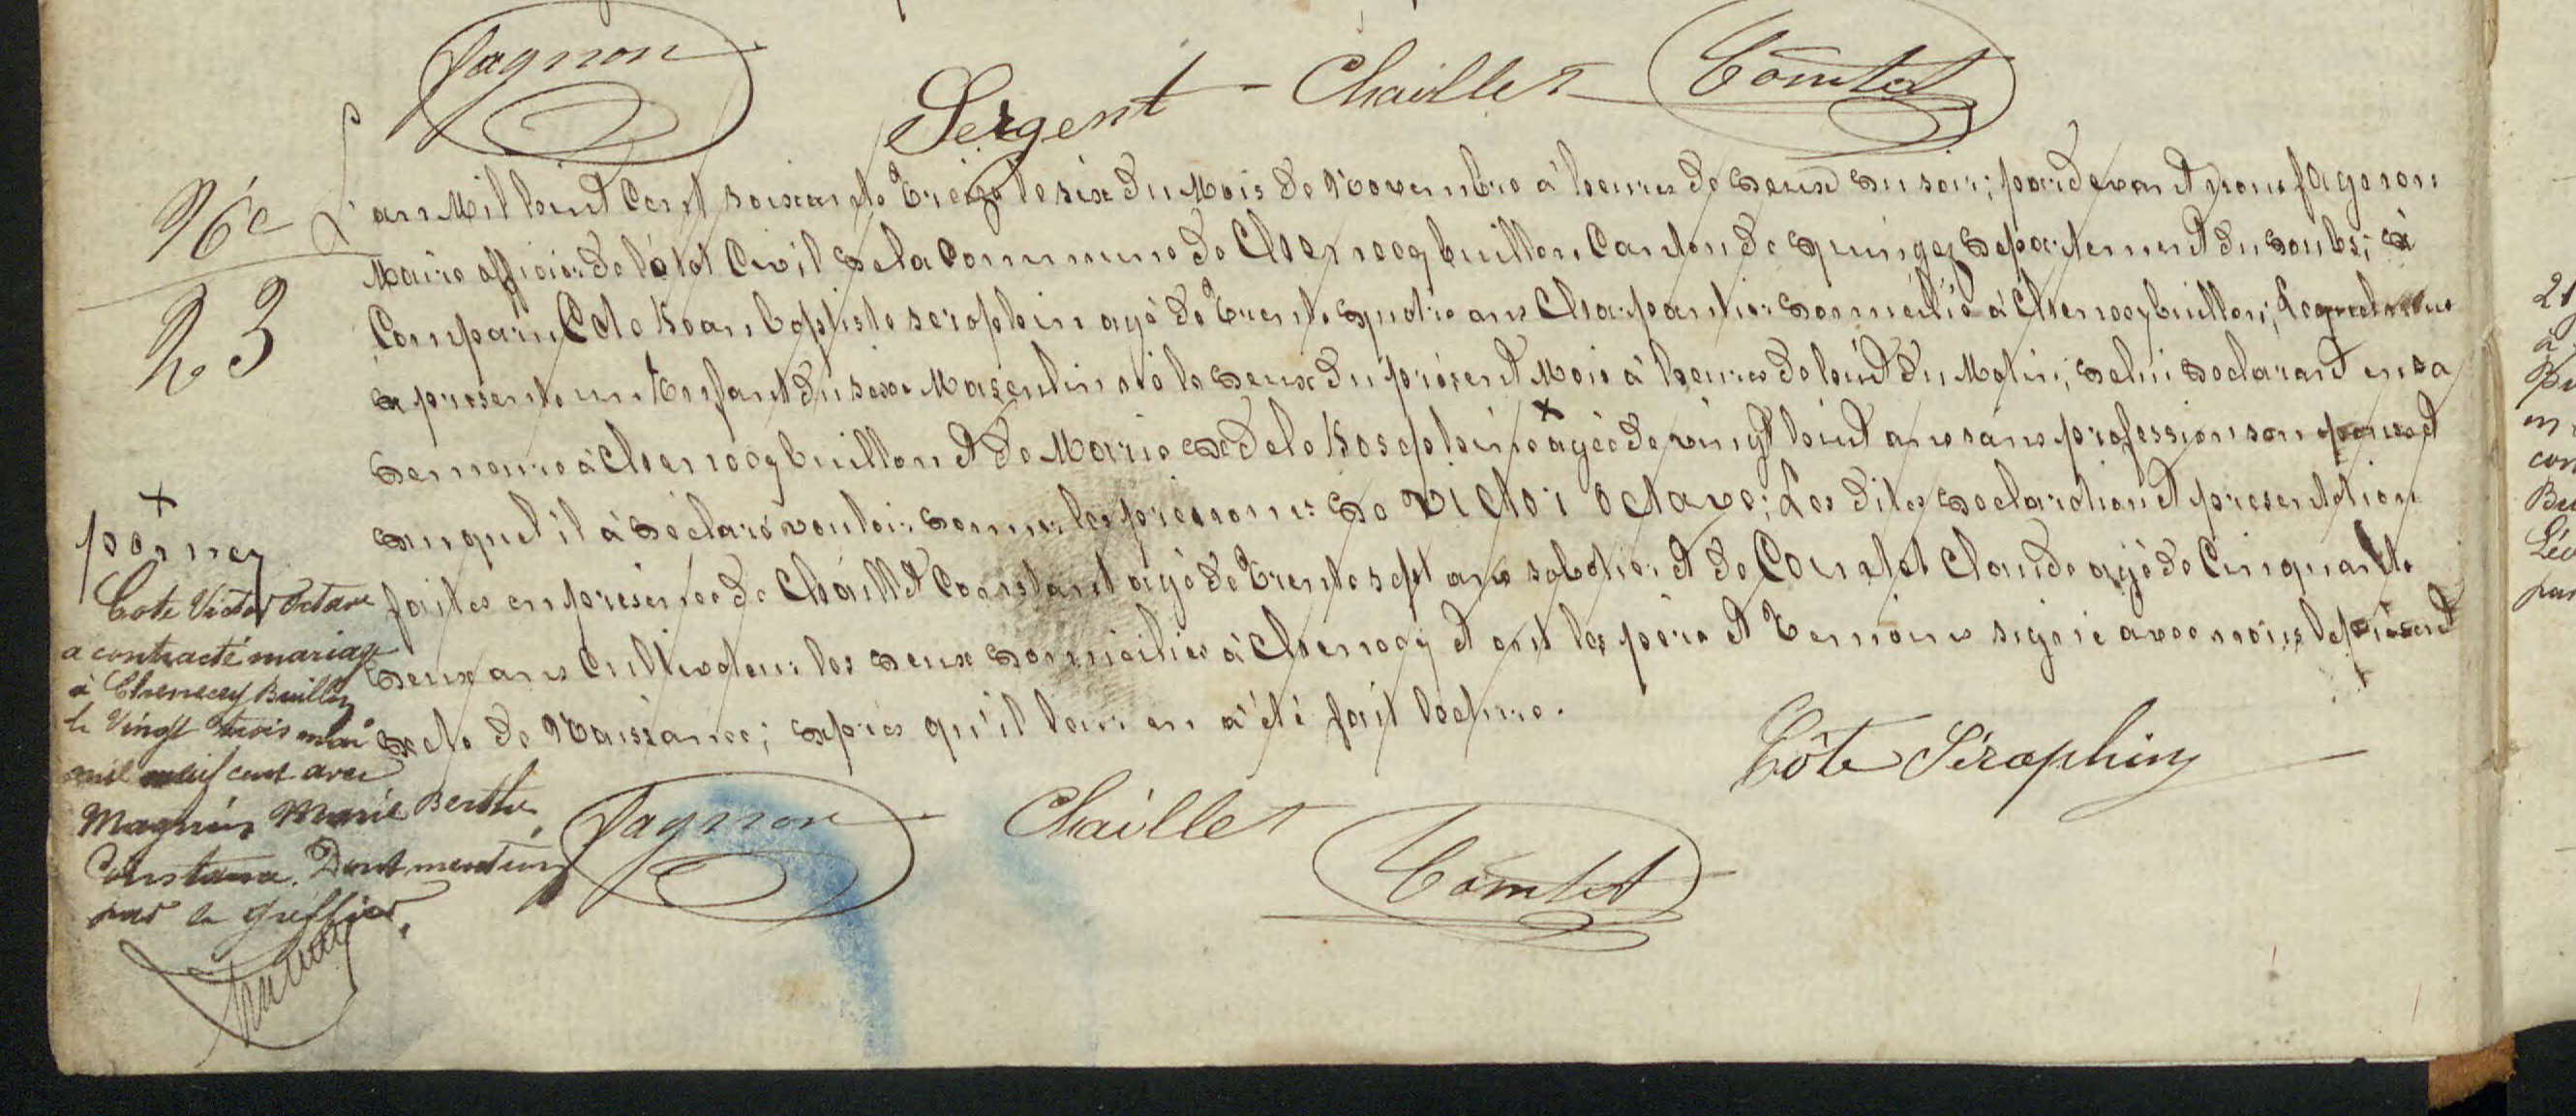 fagnon
Sergent Chaillet Comtet
Nce
23
L'an Mil huit Cent soixante treize le six du Mois de Novembre à heures de deux du soir; pardevant nous fagnon
Maire officier de l'état Civil de la Commune de Chenecey buillon Canton de quingey departement du doubs; à
Comparu Cote Jean baptiste seraphin agé de trente quatre ans Charpantier domicilié à Chenecey buillon; Lequel nous
a présenté un Enfant du sexe Masculin né le deux du présent Mois à heures de huit du Matin; de lui declarant en sa
demeure à Chenecey buillon et de Marie adele Josephine x agée de vingt huit ans sans profession son
auquel il à déclaré vouloir donner les prénoms de victor octave; Les dites declaration et presentation
faites en présence de Chaillet Constant agé de trente sept ans sabotier et de Comtet Claude agé de Cinquante
deux ans Cultivateur les deux domiciliés à Chenecey et ont les père et temoins signé avec nous le présent
acte de Naissance; après qu'il leur en a été fait lecture.
x
porney
Cote Victor Octave
a contracté mariage
à Chenecey Buillon
le Vingt trois mai
mil neuf cent avec
Magnin Marie Berthe
Constance. Dont mention
par le Greffier.
Côte Séraphin
fagnon Chaillet
Comtet